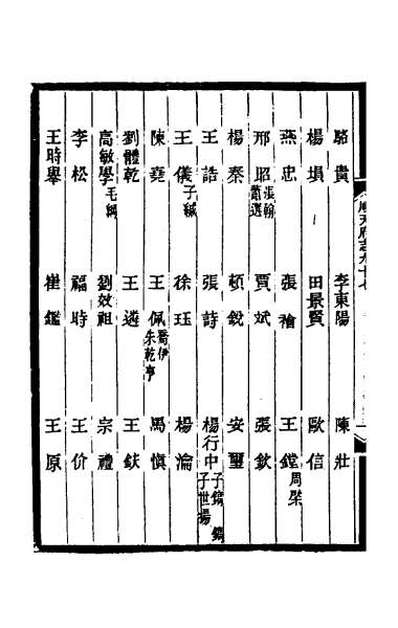 順天府志九十七
駱貴 李東陽 陳壯
楊塤 田景賢 歐信
燕忠 張襘 王鏜 周
邢昭 張翰 蕭選 賈斌 張欽
楊秦 頓銳 安璽
王誥 張詩 楊行中 子 子世揚
王儀 子緘 徐珏 楊瀹
陳堯 王佩 喬伊 朱乾亨 馬慎
劉體乾 王遴 王鈇
高敏學 毛綱 劉效祖 宗禮
李松 福時 王价
王時舉 崔鑑 王原